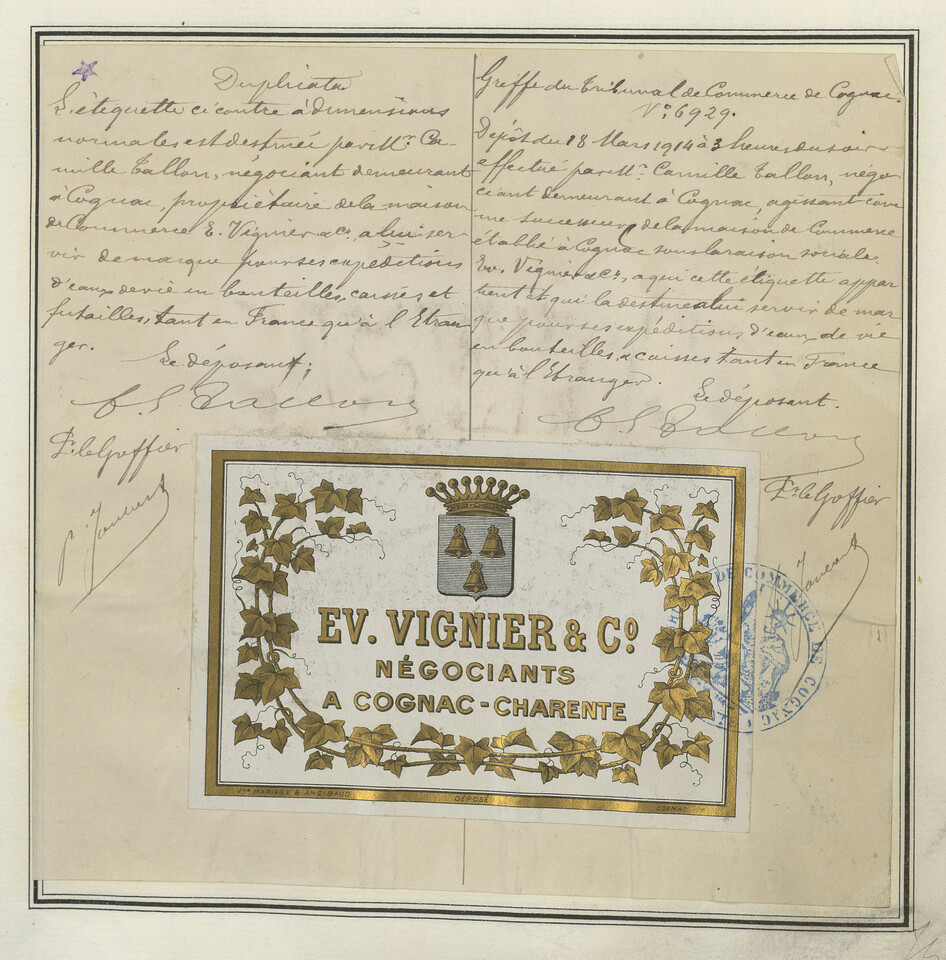 Duplicata
L'étiquette ci contre à dimensions
normales est destinée par Mr. Ca-
mille Tallon, négociant demeurant
à Cognac, propriétaire de la maison
de Commerce E. Vignier & Co, à lui ser-
vir de marque pour ses expéditions
d'eaux de vie en bouteilles, caisses et
futailles, tant en France qu'à l'Etran
ger.
Le déposant;
Pr. le Greffier
Greffe du Tribunal de Commerce de Cognac.
No. 6929.
Dépôt du 18 Mars 1914 à 3 heures du soir
effectué par Mr. Camille Tallon, négo
ciant demeurant à Cognac, agissant com
me successeur de la maison de Commerce
établie à Cognac sous la raison sociale
Ev. Vignier & Co, a qui cette étiquette appar
tient et qui la destine à lui servir de mar
que pour ses expéditions d'eaux de vie
en bouteilles, & caisses tant en France
qu'à l'Etranger.
Le déposant.
Pr. le Greffier
EV. VIGNIER & Co
NÉGOCIANTS
A COGNAC - CHARENTE
Vve MARIAGE & ANGIBAUD
DÉPOSÉ
COGNAC
DE COMMERCE DE COGNAC